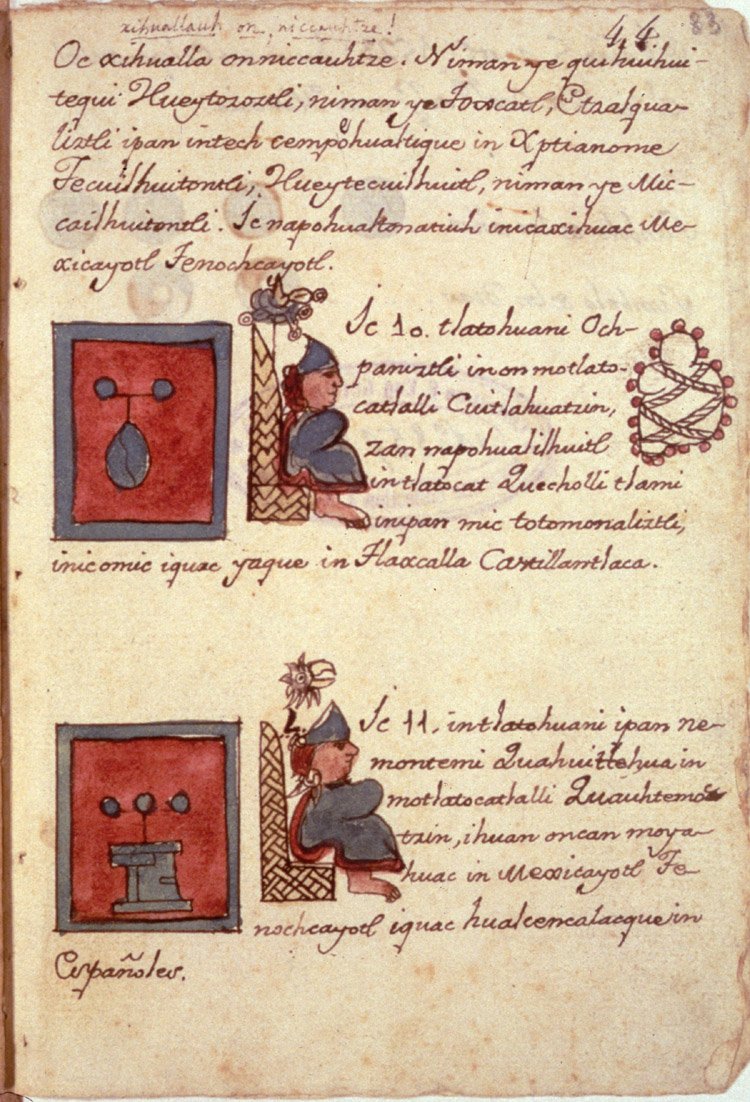 xihuallauh on, niccauhtze!
44
83
Oc xihualla onniccauhtze. Niman ye quihuihui-
tequi Hueytozoztli, niman ye Toxcatl, Etzalqua-
liztli ipan intech cempohualtique in Xptianome
Tecuilhuitontli, Hueytecuilhuitl, niman ye Mic-
cailhuitontli. Ic napohualtonatiuh inicaxihuac Me-
xicayotl Tenochcayotl.
Ic 10. tlatohuani Och-
paniztli in on motlato-
catlalli Cuitlahuatzin,
zan napohualilhuitl
in tlatocat Quecholli tlami
inipan mic totomonaliztli,
inicomic iquac yaque in Tlaxcalla Castillantlaca.
Ic 11. in tlatohuani ipan ne-
montemi Quahuitlehua in
motlatocatlalli Quauhtemo
tzin, ihuan oncan moya-
huac in Mexicayotl Te-
nochcayotl iquac hualcencalacque in
Españoles.